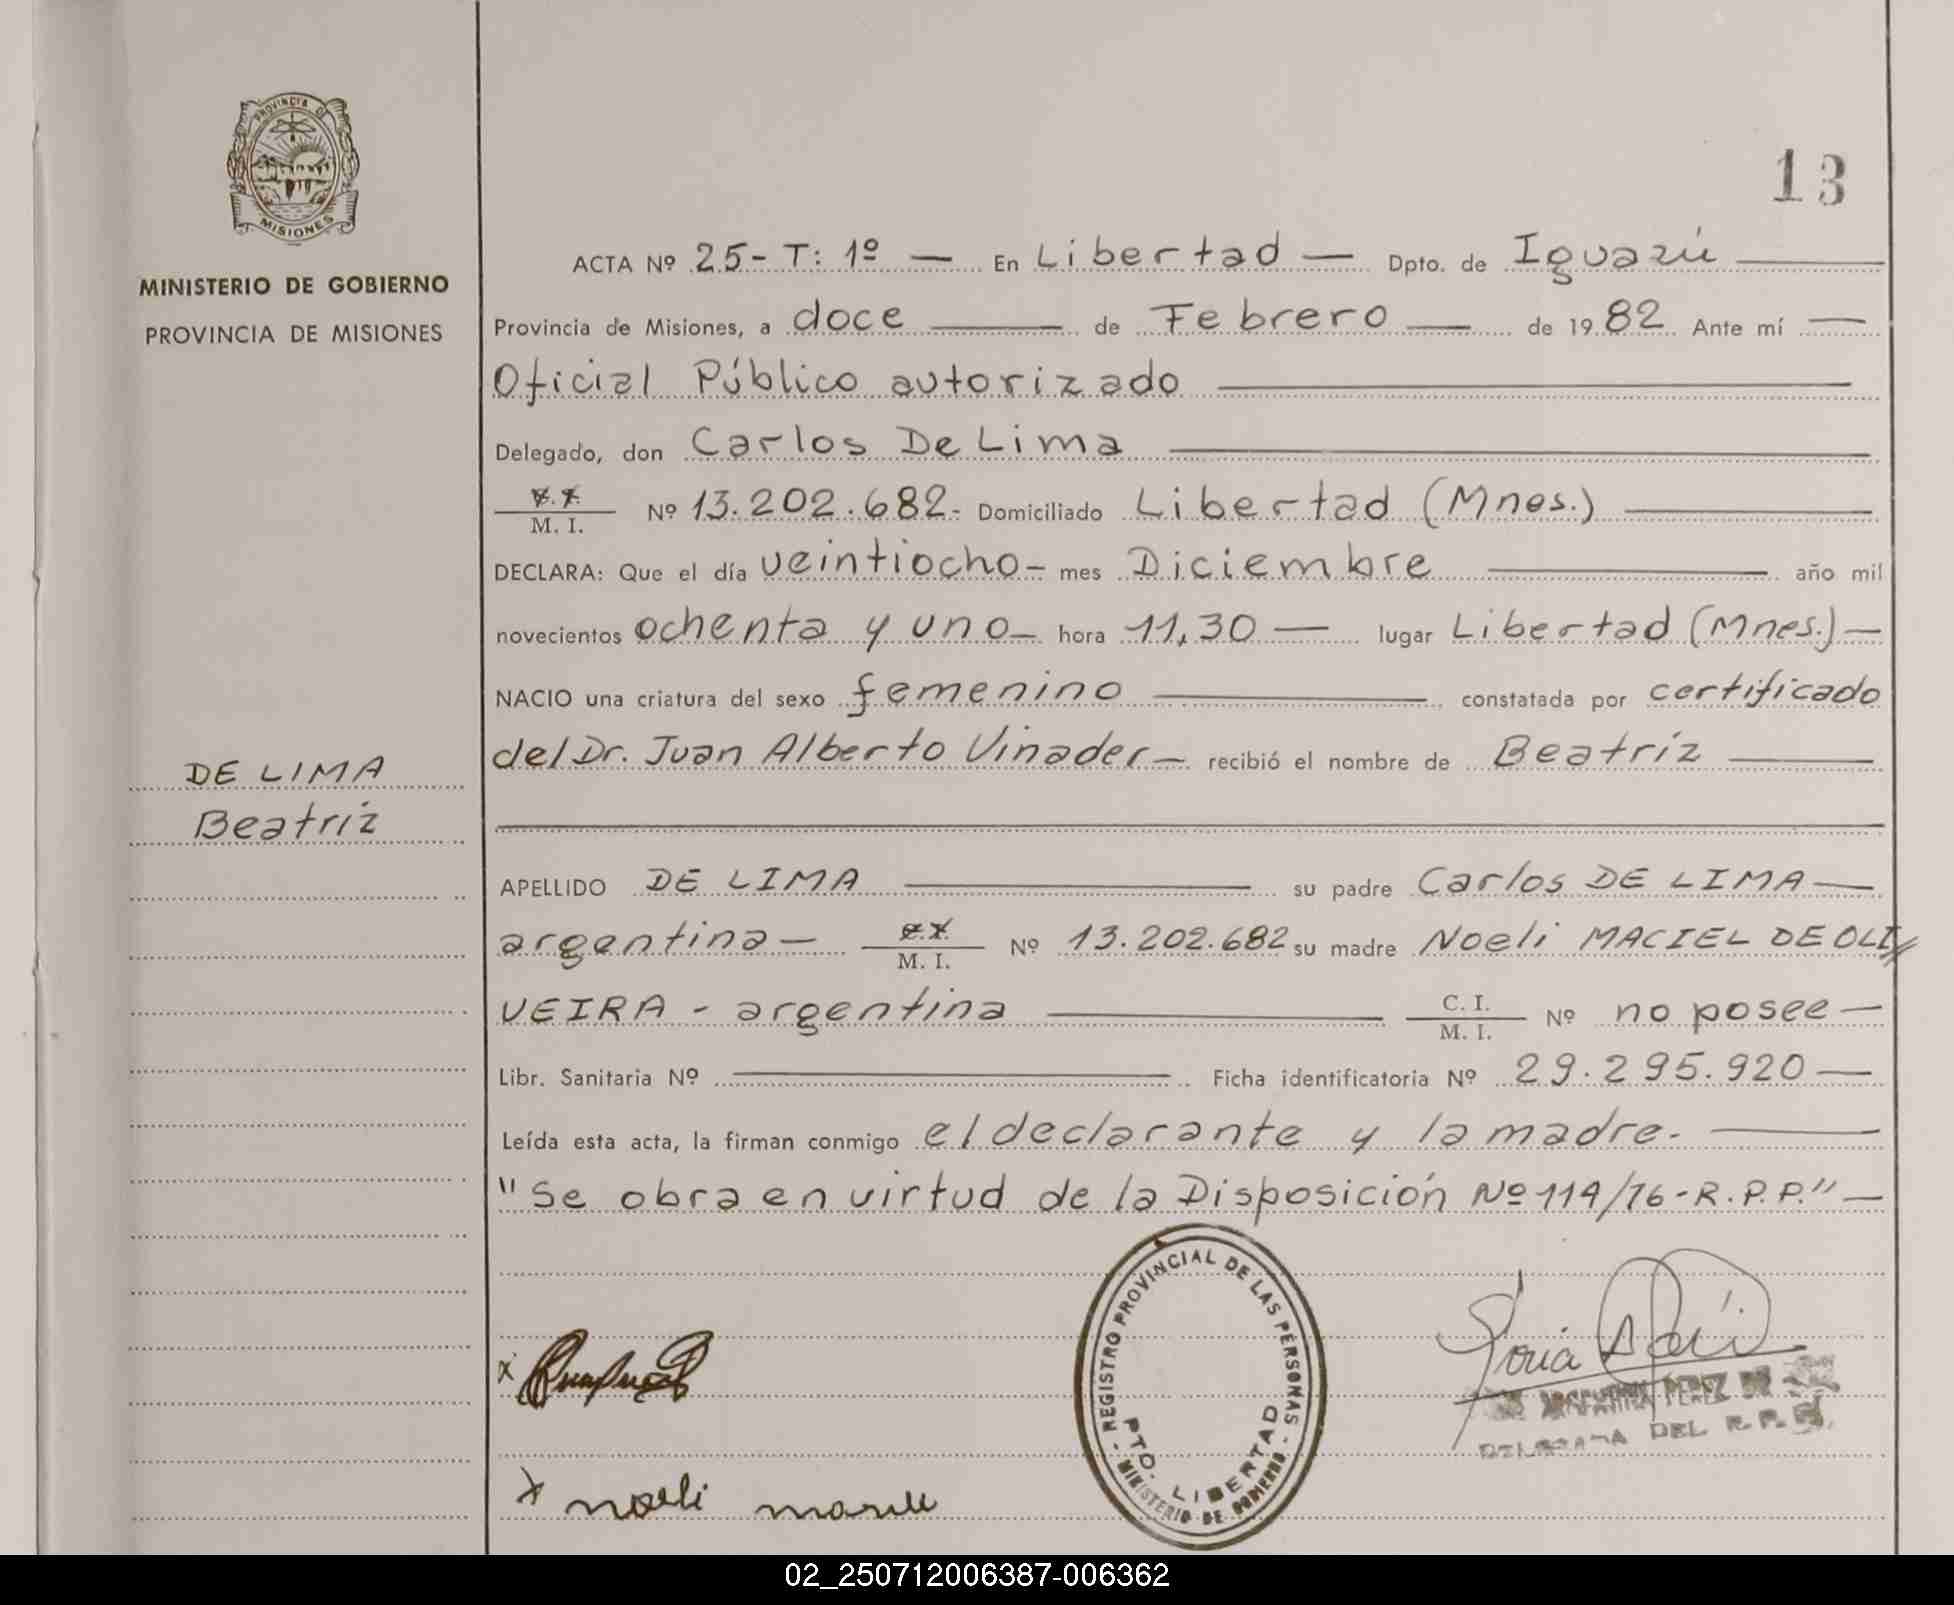 PROVINCIA DE
MISIONES
MINISTERIO DE GOBIERNO
PROVINCIA DE MISIONES
13
ACTA Nº 25- T: 1º — En Libertad — Dpto. de Iguazú
Provincia de Misiones, a doce de Febrero de 1982 Ante mí
Oficial Público autorizado
Delegado, don Carlos De Lima
M. I. Nº 13.202.682.- Domiciliado Libertad (Mnes.)
DECLARA: Que el día veintiocho- mes Diciembre año mil
novecientos ochenta y uno- hora 11,30 — lugar Libertad (Mnes.) —
NACIO una criatura del sexo femenino constatada por certificado
del Dr. Juan Alberto Vinader — recibió el nombre de Beatríz
DE LIMA
Beatríz
APELLIDO DE LIMA su padre Carlos DE LIMA —
argentina — M. I. Nº 13.202.682 su madre Noeli MACIEL DE OLI
VEIRA - argentina C. I. M. I. Nº no posee —
Libr. Sanitaria Nº Ficha identificatoria Nº 29.295.920 —
Leída esta acta, la firman conmigo el declarante y la madre.
"Se obra en virtud de la Disposición Nº 114/76-R.P.P." —
REGISTRO PROVINCIAL DE LAS PERSONAS
PTO. LIBERTAD
MINISTERIO DE GOBIERNO
x
x noeli
PEREZ DE
DELEGADA DEL R. P.
02_250712006387-006362